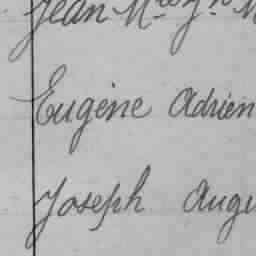 Jean M
Eugène Adrien
Joseph Augu